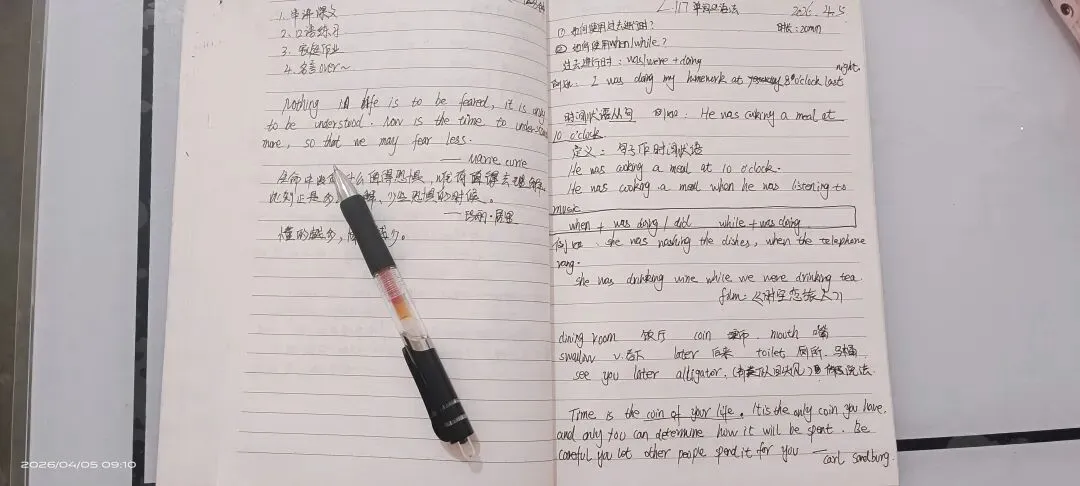 1. 串讲课文
2. 口语练习
3. 家庭作业
4. 名言over~
Nothing in life is to be feared, it is only
to be understood. Now is the time to understand
more, so that we may fear less.
—— Marie curie
生命中 什么值得恐惧，
此刻正是多 解、少些恐惧的时候。
——玛丽·居里
懂的越多，
L117 单词及语法 2026.4.5
① 如何使用过去进行时? 时长: 20min
② 如何使用when/while?
过去进行时: was/were + doing
例如: I was doing my homework at 8 o'clock last night.
时间状语从句 例如. He was cooking a meal at
10 o'clock.
定义: 句子作时间状语
He was cooking a meal at 10 o'clock.
He was cooking a meal when he was listening to
music
when + was doing / did while + was doing
例如. she was washing the dishes, when the telephone
rang.
she was drinking wine while we were drinking tea.
film:《时空恋旅人》
dining room 饭厅 coin 硬币. mouth 嘴
swallow v.吞下 later 后来 toilet 厕所. 马桶
see you later alligator. 说法.
Time is the coin of your life. It is the only coin you have,
and only you can determine how it will be spent. Be
careful you let other people spend it for you —— carl sandburg.
2026/04/05 09:10